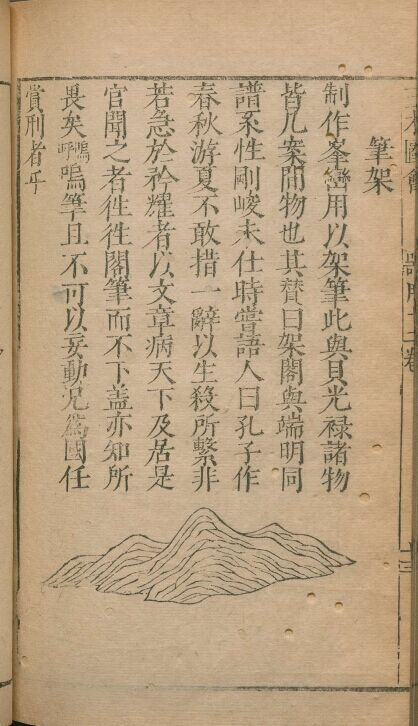 筆架
制作峯巒用以架筆此與貝光祿諸物
皆几案間物也其贊曰架閣與端明同
譜系性剛峻未仕時嘗語人曰孔子作
春秋游夏不敢措一辭以生殺所繫非
若急於衿耀者以文章病天下及居是
官聞之者徃徃閣筆而不下盖亦知所
畏矣嗚呼嗚筆且不可以妄動况爲國任
賞刑者乎